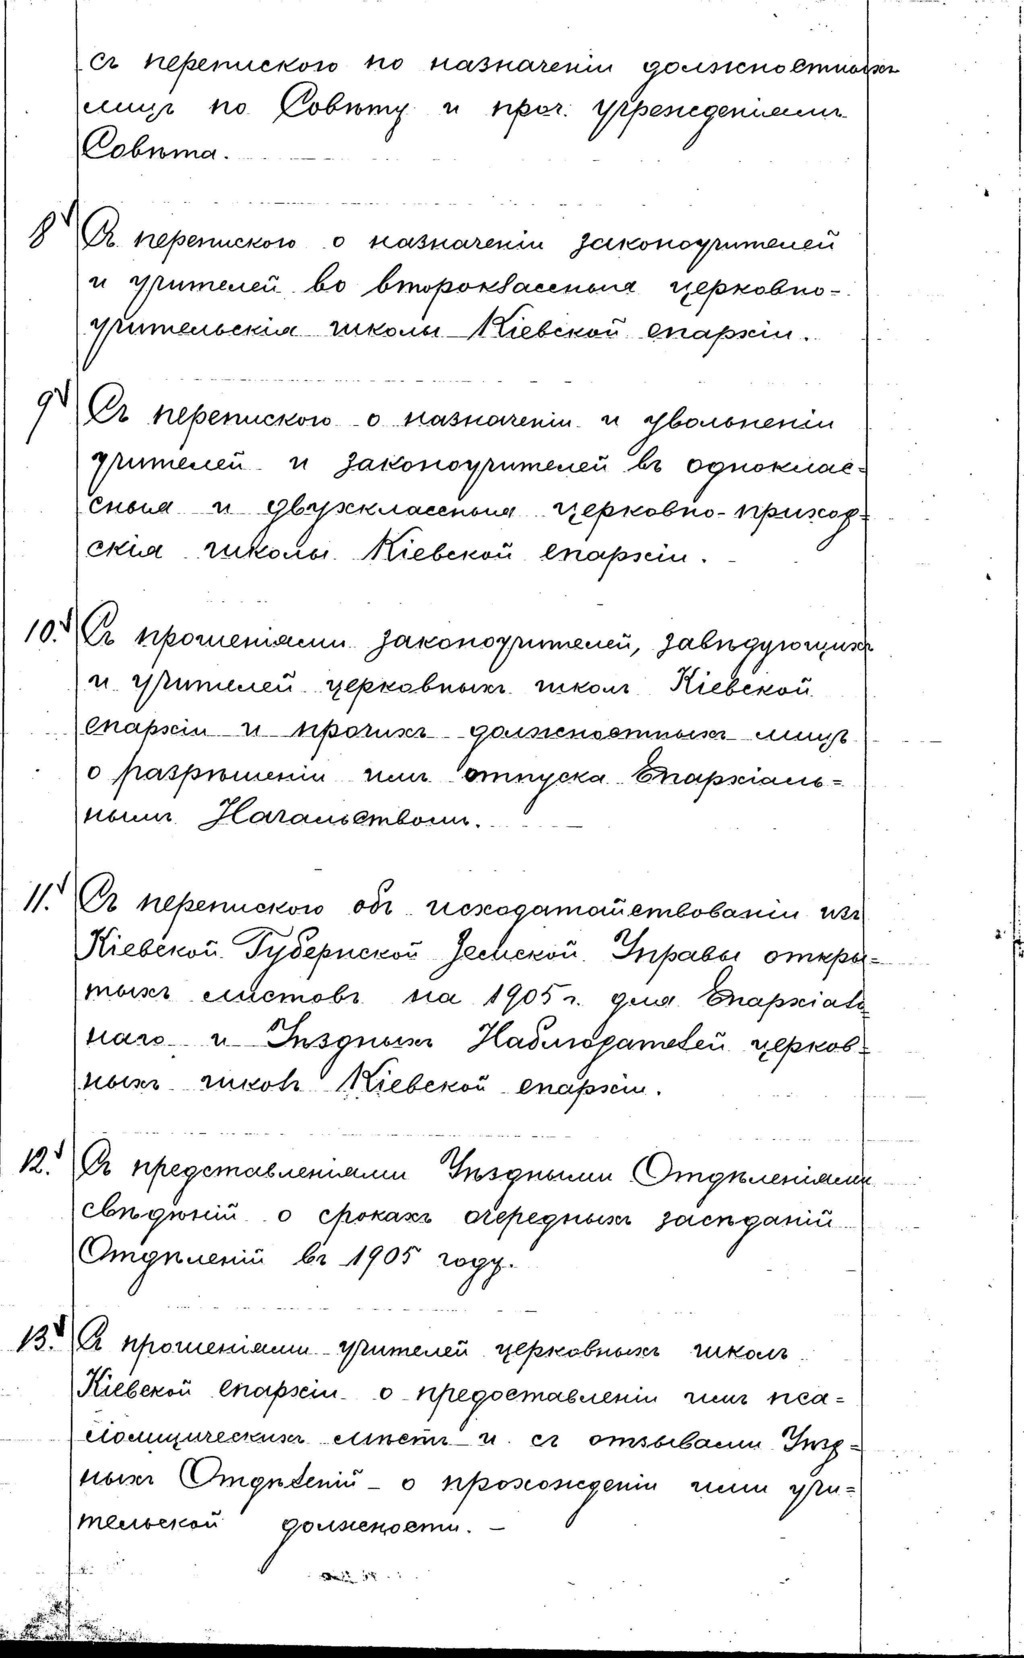 съ перепискою по назначенiи должностныхъ
лицъ по Совѣту и проч. учрежденiямъ
Совѣта.
8 Съ перепискою о назначенiи законоучителей
и учителей во второклассныя церковно-
учительскiя школы Кiевской епархiи.
9 Съ перепискою о назначенiи и увольненiи
учителей и законоучителей въ одноклас=
сныя и двухклассныя церковно-приход=
скiя школы Кiевской епархiи.
10. Съ прошенiями законоучителей, завѣдующихъ
и учителей церковныхъ школъ Кiевской
епархiи и прочихъ должностныхъ лицъ
о разрѣшенiи имъ отпуска Епархiаль=
нымъ Начальствомъ.
11. Съ перепискою объ исходатайствованiи изъ
Кiевской Губернской Земской Управы откры=
тыхъ листовъ на 1905 г. для Епархiаль
наго и Уѣздныхъ Наблюдателей церков=
ныхъ школъ Кiевской епархiи.
12. Съ представленiями Уѣздными Отдѣленiями
свѣдѣнiй о срокахъ очередныхъ засѣданiй
Отдѣленiй въ 1905 году.
13. Съ прошенiями учителей церковныхъ школъ
Кiевской епархiи о предоставленiи имъ пса=
ломщическихъ мѣстъ и съ отзывами Уѣзд=
ныхъ Отдѣленiй о прохожденiи ими учи=
тельской должности. –